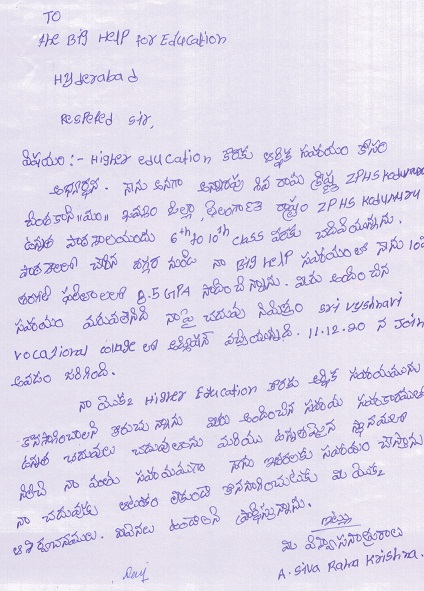 TO
the Big Help for Education
Hyderabad
Respeted sir,
విషయం :- Higher education కొరకు ఆర్థిక సహాయం కోసం
అభ్యర్థన. నేను అనగా శివ రామ క్రిష్ణ ZPHS Kodumuru
చింతకాని "మం" ఖమ్మం జిల్లా, తెలంగాణ రాష్ట్రం ZPHS Kodumuru
ఉన్నత పాఠశాలయందు 6th to 10th class వరకు చదివియున్నాను.
పాఠశాలలో చేరిన దగ్గర నుండి నా Big HELP సహాయంతో నేను 10వ
తరగతి ఫలితాలలో 8.5 GPA సాధించియున్నాను. మీరు అందించిన
సహాయం మరువలేనిది నా పై చదువు నిమిత్తం sri vyshnavi
vocational collage లో అడ్మిషన్ వచ్చియున్నది. 11.12.20 న Join
అవడం జరిగింది.
నా యొక్క Higher Education కొరకు ఆర్థిక సహాయమును
కొనసాగించాలని కోరుచున్నాను మీరు అందించిన సహాయ సహకారములతో
ఉన్నత చదువులు చదువుతాను మరియు ఉన్నతమైన స్థానములో
నిలిచి నా వంతు సహాయముగా నేను ఇతరులకు సహాయం చేస్తాను
నా చదువుకు ఆటంకం లేకుండా కొనసాగించుటకు మీ యొక్క
ఆశీర్వచనములు. దీవెనలు ఉండాలని ప్రార్థిస్తున్నాను.
ఇట్లు
మీ విశ్వాసపాత్రురాలు
A. Siva Rama Krishna.